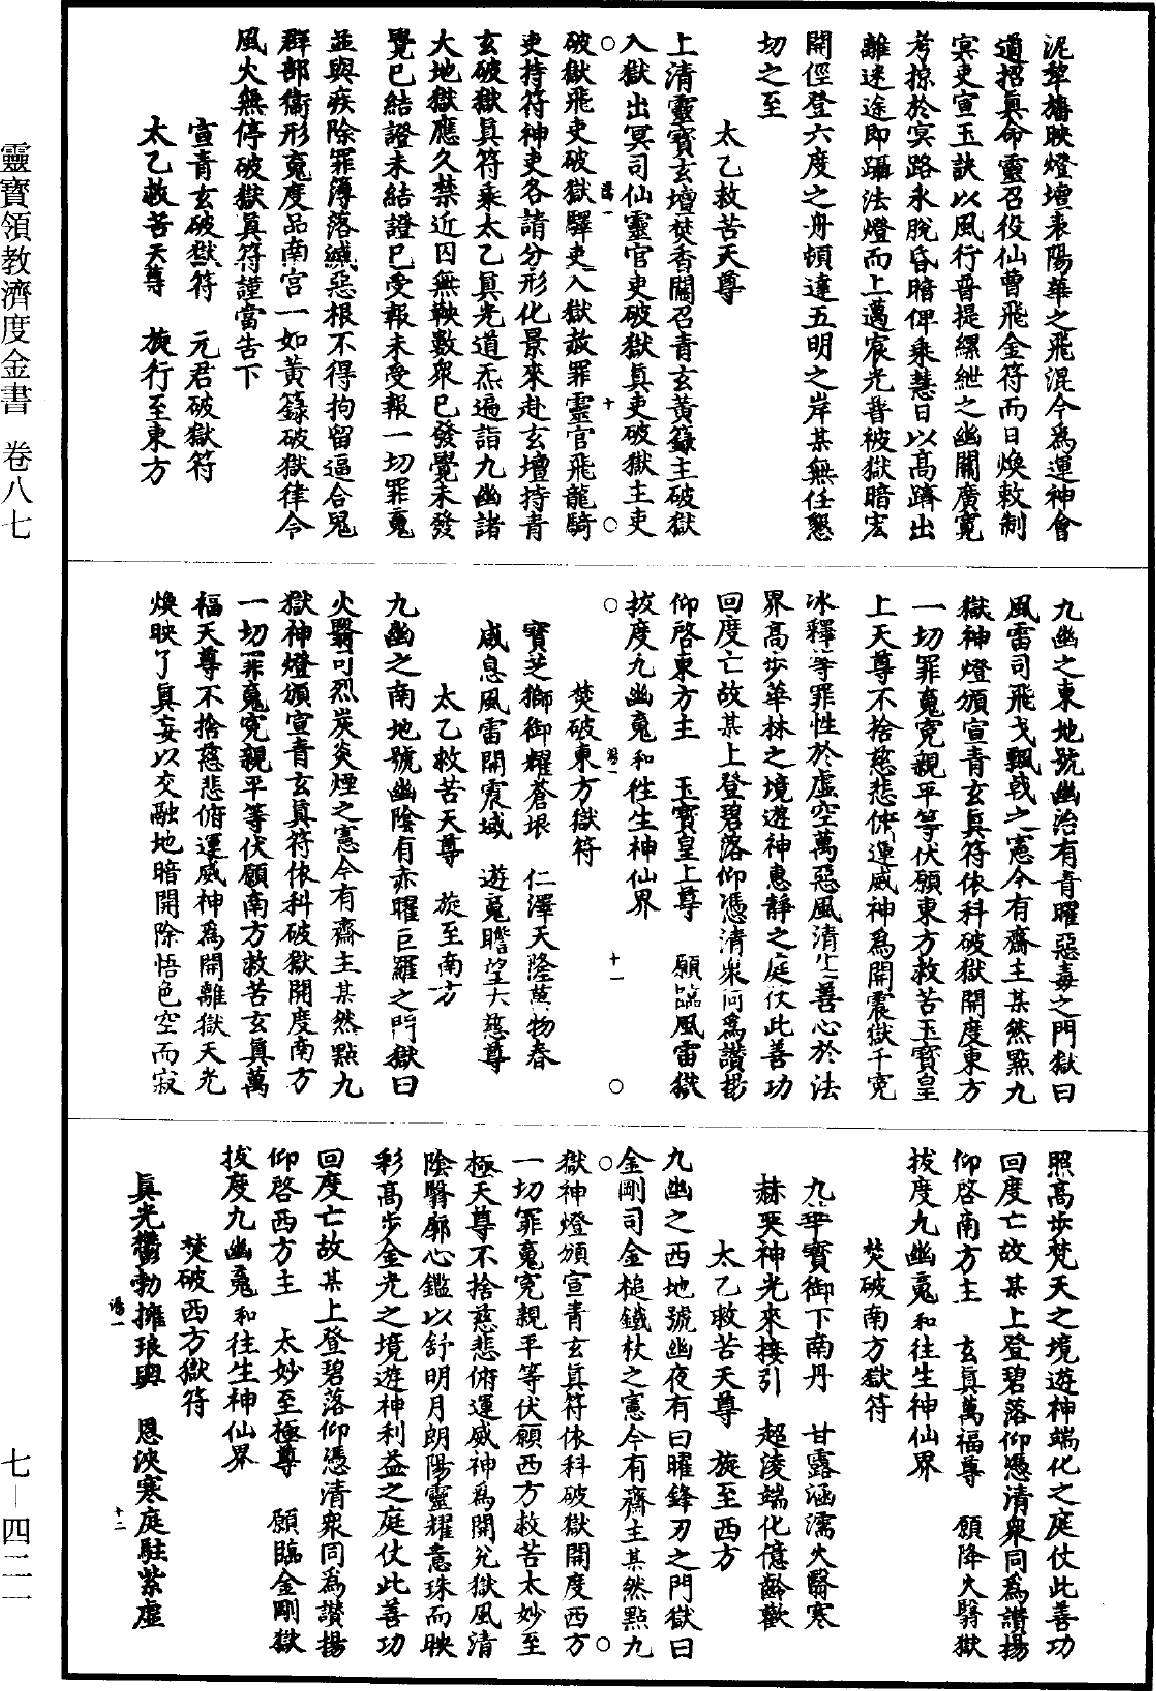 泥犂旛映燈壇表陽華之飛混今爲運神會
道招眞命靈召役仙曹飛金符而日煥敕制
冥吏宣玉訣以風行普提縲絏之幽關廣寬
考掠於冥路永脫昏暗俾乘慧日以高躋出
離迷途即躡法燈而上邁宸光普被獄暗宏
開徑登六度之舟頓達五明之岸某無任懇
切之至
太乙救苦天尊
上清靈寶玄壇焚香關召青玄黃籙主破獄
入獄出冥司仙靈官吏破獄眞吏破獄主吏
破獄飛吏破獄驛吏入獄赦罪靈官飛龍騎
吏持符神吏各請分形化景來赴玄壇持青
玄破獄眞符乘太乙眞光道炁遍詣九幽諸
大地獄應久禁近囚無鞅數衆已發覺未發
覺已結證未結證已受報未受報一切罪䰟
並與疾除罪簿落滅惡根不得拘留逼合鬼
群部衞形䰟度品南宫一如黃籙破獄律令
風火無停破獄眞符謹當告下
宣青玄破獄符　元君破獄符
太乙救苦天尊　旋行至東方
九幽之東地號幽治有青曜惡毒之門獄曰
風雷司飛戈飄戟之憲今有齋主某然點九
獄神燈頒宣青玄眞符依科破獄開度東方
一切罪䰟寃親平等伏願東方救苦玉寳皇
上天尊不捨慈悲俯運威神爲開震獄千寃
冰釋等罪性於虛空萬惡風清生善心於法
界高步華林之境遊神惠靜之庭仗此善功
回度亡故某上登碧落仰憑清衆同爲讚揚
仰啓東方主　玉寳皇上尊　願臨風雷獄
拔度九幽䰟和往生神仙界
焚破東方獄符
寶芝獅御耀蒼垠　仁澤天隆萬物春
威息風雷開震域　遊䰟瞻望大慈尊
太乙救苦天尊　旋至南方
九幽之南地號幽陰有赤曜巨羅之門獄曰
火翳司烈炭炎煙之憲今有齋主某然點九
獄神燈頒宣青玄眞符依科破獄開度南方
一切罪䰟寃親平等伏願南方救苦玄眞萬
福天尊不捨慈悲俯運威神爲開離獄天光
煥映了眞妄以交融地暗開除悟色空而寂
照高步梵天之境遊神端化之庭仗此善功
回度亡故某上登碧落仰憑清衆同爲讚揚
仰啓南方主　玄眞萬福尊　願降火翳獄
拔度九幽䰟和往生神仙界
焚破南方獄符
九華寶御下南丹　甘露涵濡火翳寒
赫奕神光來接引　超淩端化億齡歡
太乙救苦天尊　旋至西方
九幽之西地號幽夜有白曜鋒刃之門獄曰
金剛司金槌鐵杖之憲今有齋主某然點九
獄神燈頒宣青玄眞符依科破獄開度西方
一切罪䰟寃親平等伏願西方救苦太妙至
極天尊不捨慈悲俯運威神爲開兌獄風清
陰翳廓心鑑以舒明月朗陽靈耀意珠而映
彩高步金光之境遊神利益之庭仗此善功
回度亡故某上登碧落仰憑清衆同爲讚揚
仰啓西方主　太妙至極尊　願臨金剛獄
拔度九幽䰟和往生神仙界
焚破西方獄符
眞光鬱勃擁琅輿　恩泱寒庭駐紫虛
十
十一
十二
靈寶領教濟度金書　卷八七
七—四二一